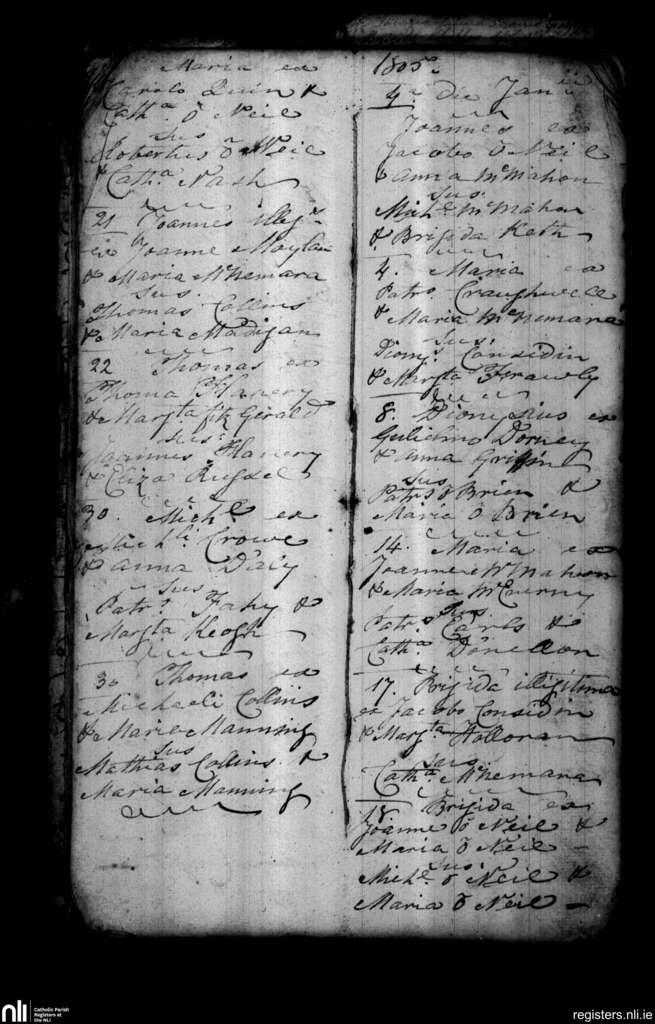 Maria ex
Carolo Quin &
Cath.a ō Neil
Sus
Robertus ō Neil
& Cath.a Nash
21 Joannes illeg.s
ex Joanne Moylan
& Maria McNemara
Sus.
Thomas Collins
& Maria Madigan
22 Thomas ex
Thoma Flanery
& Marg.ta fitz Gerald
Sus.
Joannes Flanery
& Eliza Russel
30. Mich.l ex
Mich.li Crowe
& Anna Daly
Sus
Patr.s Fahy &
Marg.ta Keogh
30 Thomas ex
Michaeli Collins
& Maria Manning
Sus
Mathias Collins &
Maria Manning
1805.
4.a die Jan.ii
Joannes ex
Jacobo ō Neil
& Anna McMahon
Sus.
Mich.l McMahon
& Brigida Keth
4. Maria ex
Patr.o Craughwell
& Maria McNemara
Sus.
Diony.s Considin
& Marg.ta Frawly
8. Dionysius ex
Gulielmo Dorney
& Anna Griffin
Sus
Patr.s ō Brien &
Maria ō Brien
14. Maria ex
Joanne McMahon
& Maria McEnerny
Sus.
Patr.s &
Cath.a Donellon
17. Brigida illigitima
ex Jacobo Considin
& Marg.ta Holloran
Sus.
Cath.a McNemara
18. Brigida ex
Joanne ō Neil &
Maria ō Neil –
Sus.
Mich.l ō Neil &
Maria ō Neil –
nli
Catholic Parish
Registers at
the NLI
registers.nli.ie